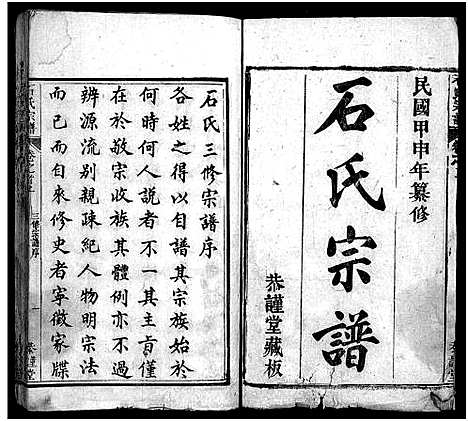 民國甲申年纂修
石氏宗譜
恭謹堂藏板
石氏三修宗譜序
各姓之得用以自其宗族始於
何時何人說者不一其主旨僅
在於敬宗收族其體例亦不外
辨源流別親疎紀人物明宗法
而已而自來修史者寧徵家牒
石氏宗譜
三修宗譜序
一